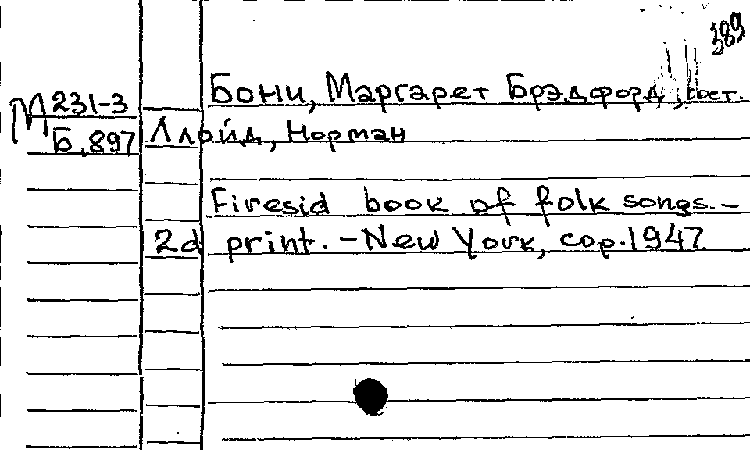 389
Бони, Маргарет Брэдфорд, сост.
М 231-3
Б.897
Ллойд, Норман
Firesid book of folk songs.-
2d print.-New York, cop.1947